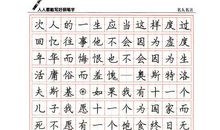 人人都能写好钢笔字 名人名言
次人的一生应当这样度过
回忆往事他不会因为虚度
年华而悔恨也不会因为生
活庸俗而羞愧 奥斯特洛
夫 如果我有
儿子我 十一个为国家而
死不愿有一个